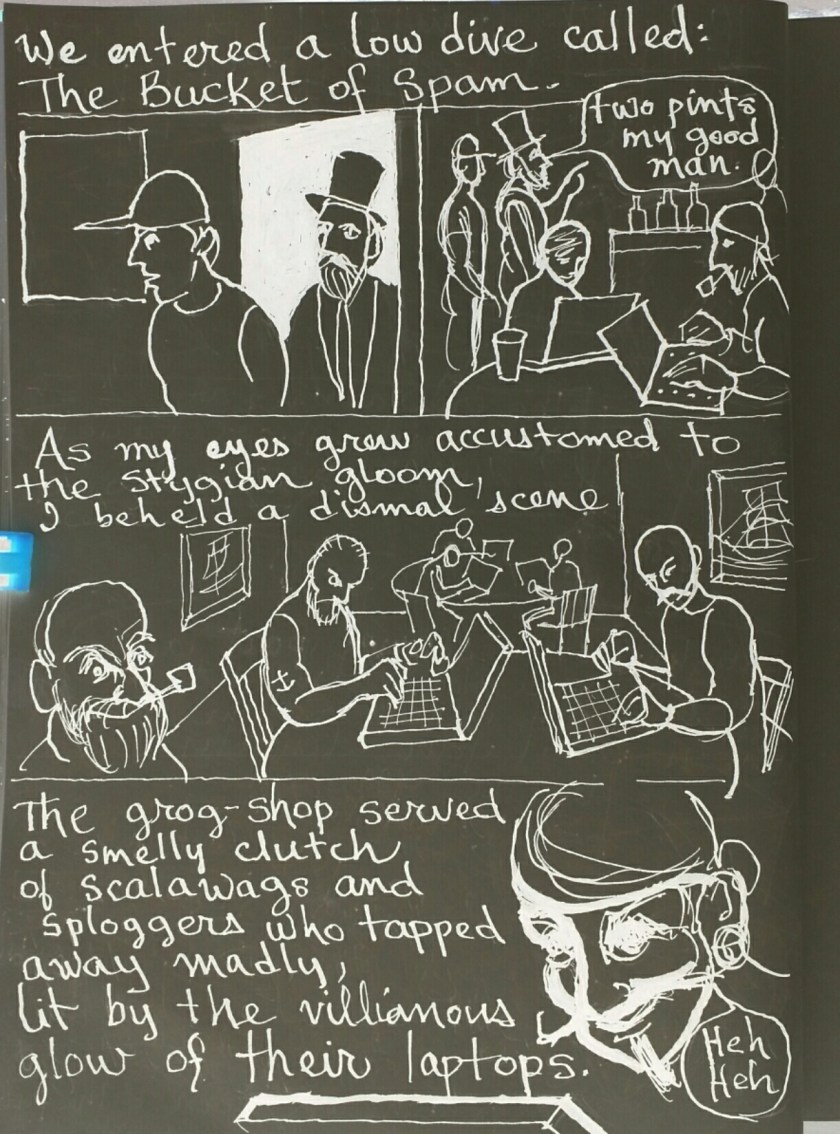 We entered a low dive called:
The Bucket of Spam.
two pints
my good
man.
As my eyes grew accustomed to
the Stygian gloom,
I beheld a dismal scene
The grog-shop served
a smelly clutch
of scalawags and
sploggers who tapped
away madly,
lit by the villianous
glow of their laptops.
Heh
Heh